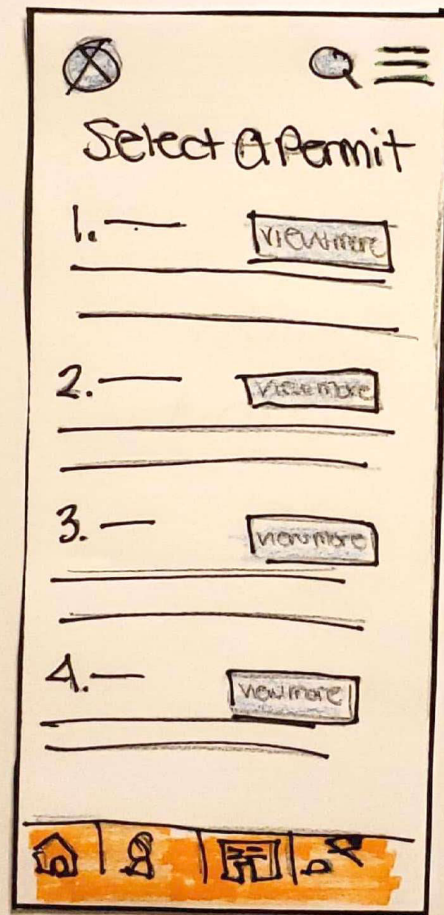 Select a Permit
1.
view more
2.
view more
3.
view more
4.
view more